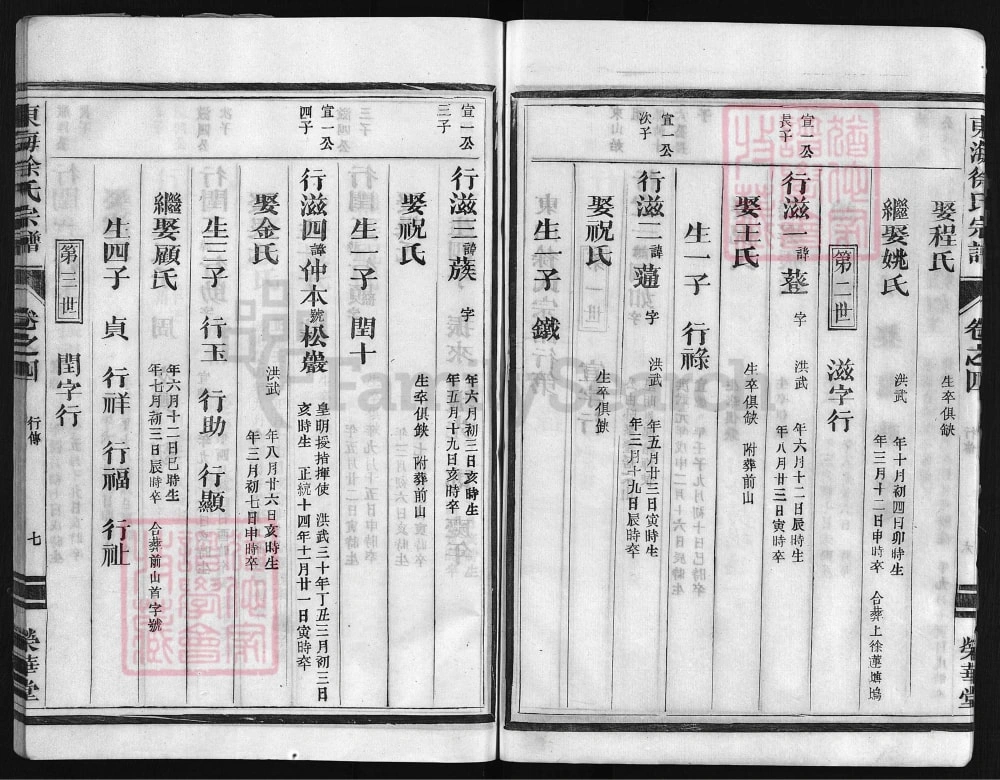 東海徐氏宗譜
卷之四
榮華堂
娶程氏 生卒俱缺
繼娶姚氏 洪武 年十月初四日卯時生
年三月十二日申時卒 合葬上徐蓮塘塢
第二世 滋字行
宣一公
長子
行滋一 諱䔲 字 洪武 年六月十二日辰時生
年八月廿三日寅時卒
娶王氏 生卒俱缺 附葬前山
生一子 行祿
宣一公
次子
行滋二 諱薀 字 洪武 年五月廿三日寅時生
年三月十九日辰時卒
娶祝氏 生卒俱缺
生一子 鐵
宣一公
三子
行滋三 諱蔟 字 年六月初三日亥時生
年五月十九日亥時卒
娶祝氏 生卒俱缺 附葬前山
生一子 閏十
宣一公
四子
行滋四 諱仲本 號松巖 皇明授指揮使 洪武三十年丁丑三月初三日
亥時生 正統十四年十一月廿一日寅時卒
娶金氏 洪武 年八月廿六日亥時生
年三月初七日申時卒
生三子 行玉 行助 行顯
繼娶顧氏 年六月十二日巳時生
年七月初三日辰時卒 合葬前山首字號
生四子 貞 行祥 行福 行祉
第三世 閏字行
東海徐氏宗譜
卷之四
行傳
七
榮華堂
FamilySearch